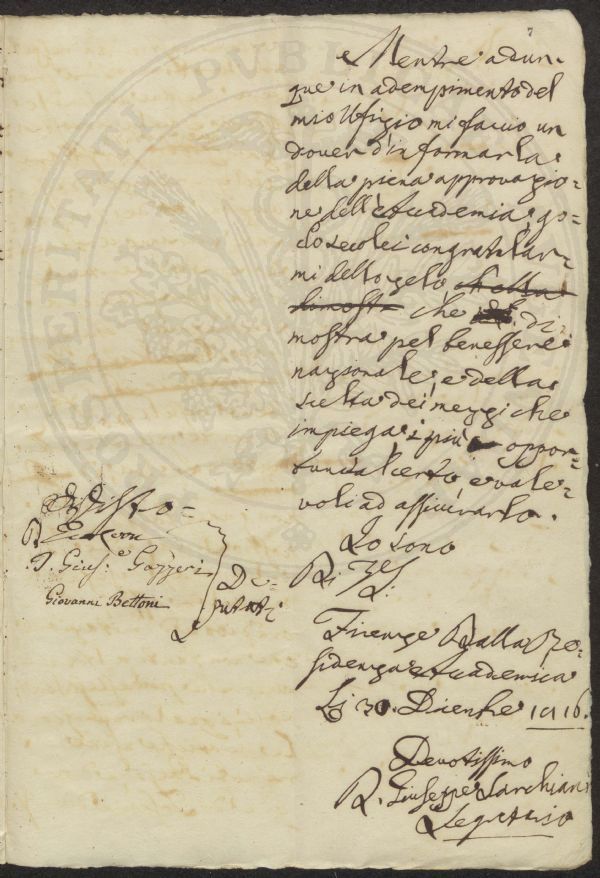 7
Mentre adun-
que in adempimento del
mio Ufizio mi faccio un
dover d'informarla
della piena approvazio-
ne dell'Accademia, go-
do seco lei congratular-
mi dello zelo ch ella
dimost che di-
mostra pel benessere
nazionale, e della
scelta dei mezzi che
impiega, i più oppor-
tuni al certo, e vale-
voli ad assicurarlo.
Io sono
Firenze Dalla Re-
sidenza Accademica
Li 30. Dicembre 1816.
Devotissimo
D. Giuseppe Sarchiani
Segretario
Visto
D. Gius.e Gazzeri
Giovanni Bettoni
De-
putati